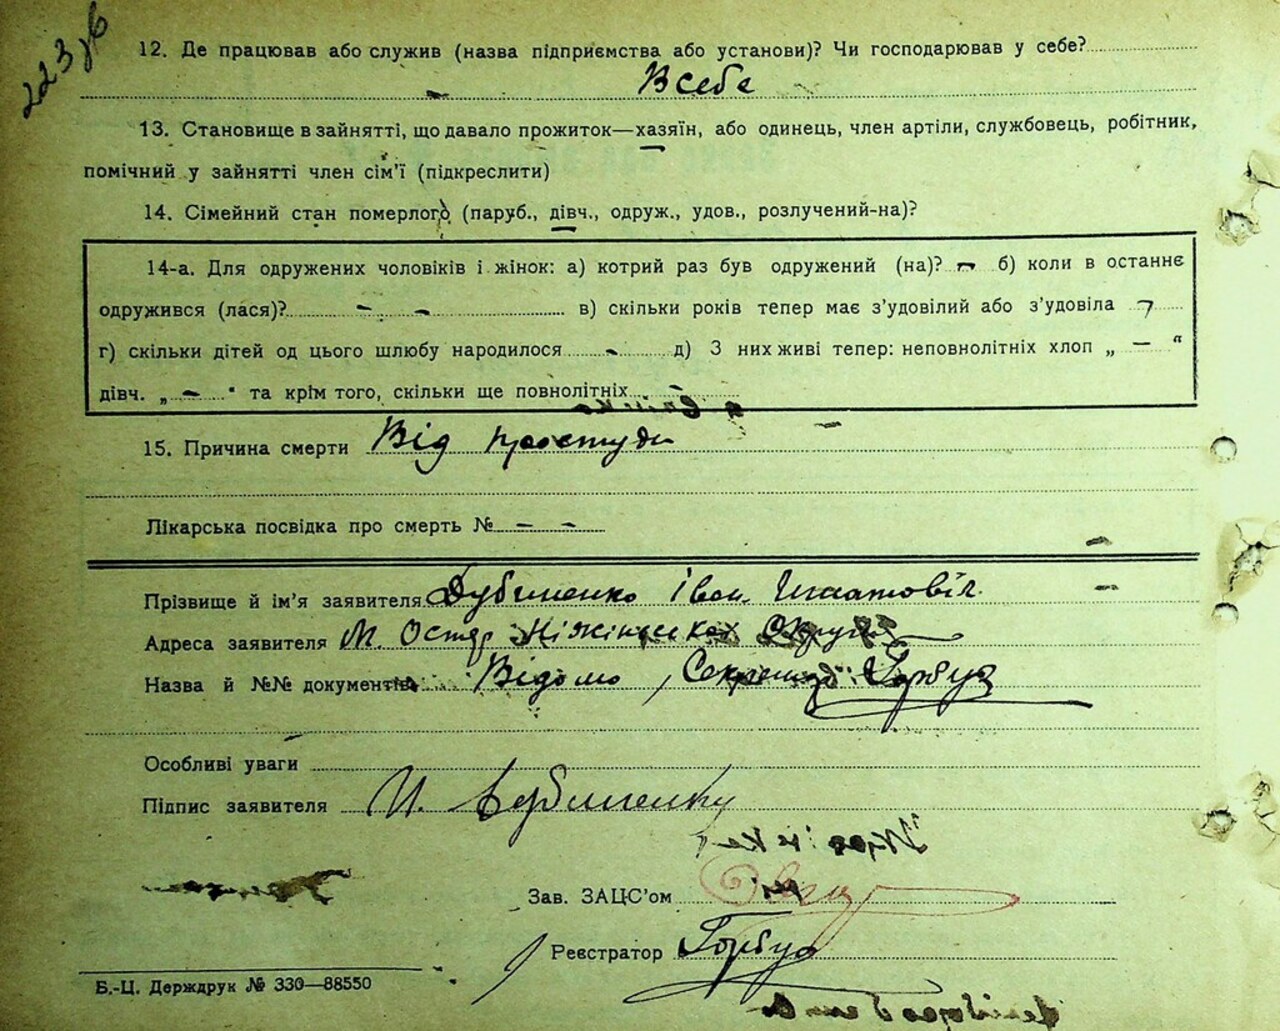 223 зб
12. Де працював або служив (назва підприємства або установи)? Чи господарював у себе?
В себе
13. Становище в зайнятті, що давало прожиток—хазяїн, або одинець, член артіли, службовець, робітник,
помічний у зайнятті член сім'ї (підкреслити)
14. Сімейний стан померлого (паруб., дівч., одруж., удов., розлучений-на)?
14-а. Для одружених чоловіків і жінок: а) котрий раз був одружений (на)? – б) коли в останнє
одружився (лася)? – – в) скільки років тепер має з'удовілий або з'удовіла –
г) скільки дітей од цього шлюбу народилося – д) З них живі тепер: неповнолітніх хлоп „ — "
дівч. „ – " та крім того, скільки ще повнолітніх –
15. Причина смерти Від простуди
Лікарська посвідка про смерть № – –
Прізвище й ім'я заявителя Дубиненко Іван Игнатовіч
Адреса заявителя М. Остер Ніжінської Округи
Назва й №№ документів Відомо, Секретар Горбуз
Особливі уваги
Підпис заявителя И. Дубиненко
Зав. ЗАЦС'ом
Реєстратор Горбуз
Б.-Ц. Держдрук № 330—88550